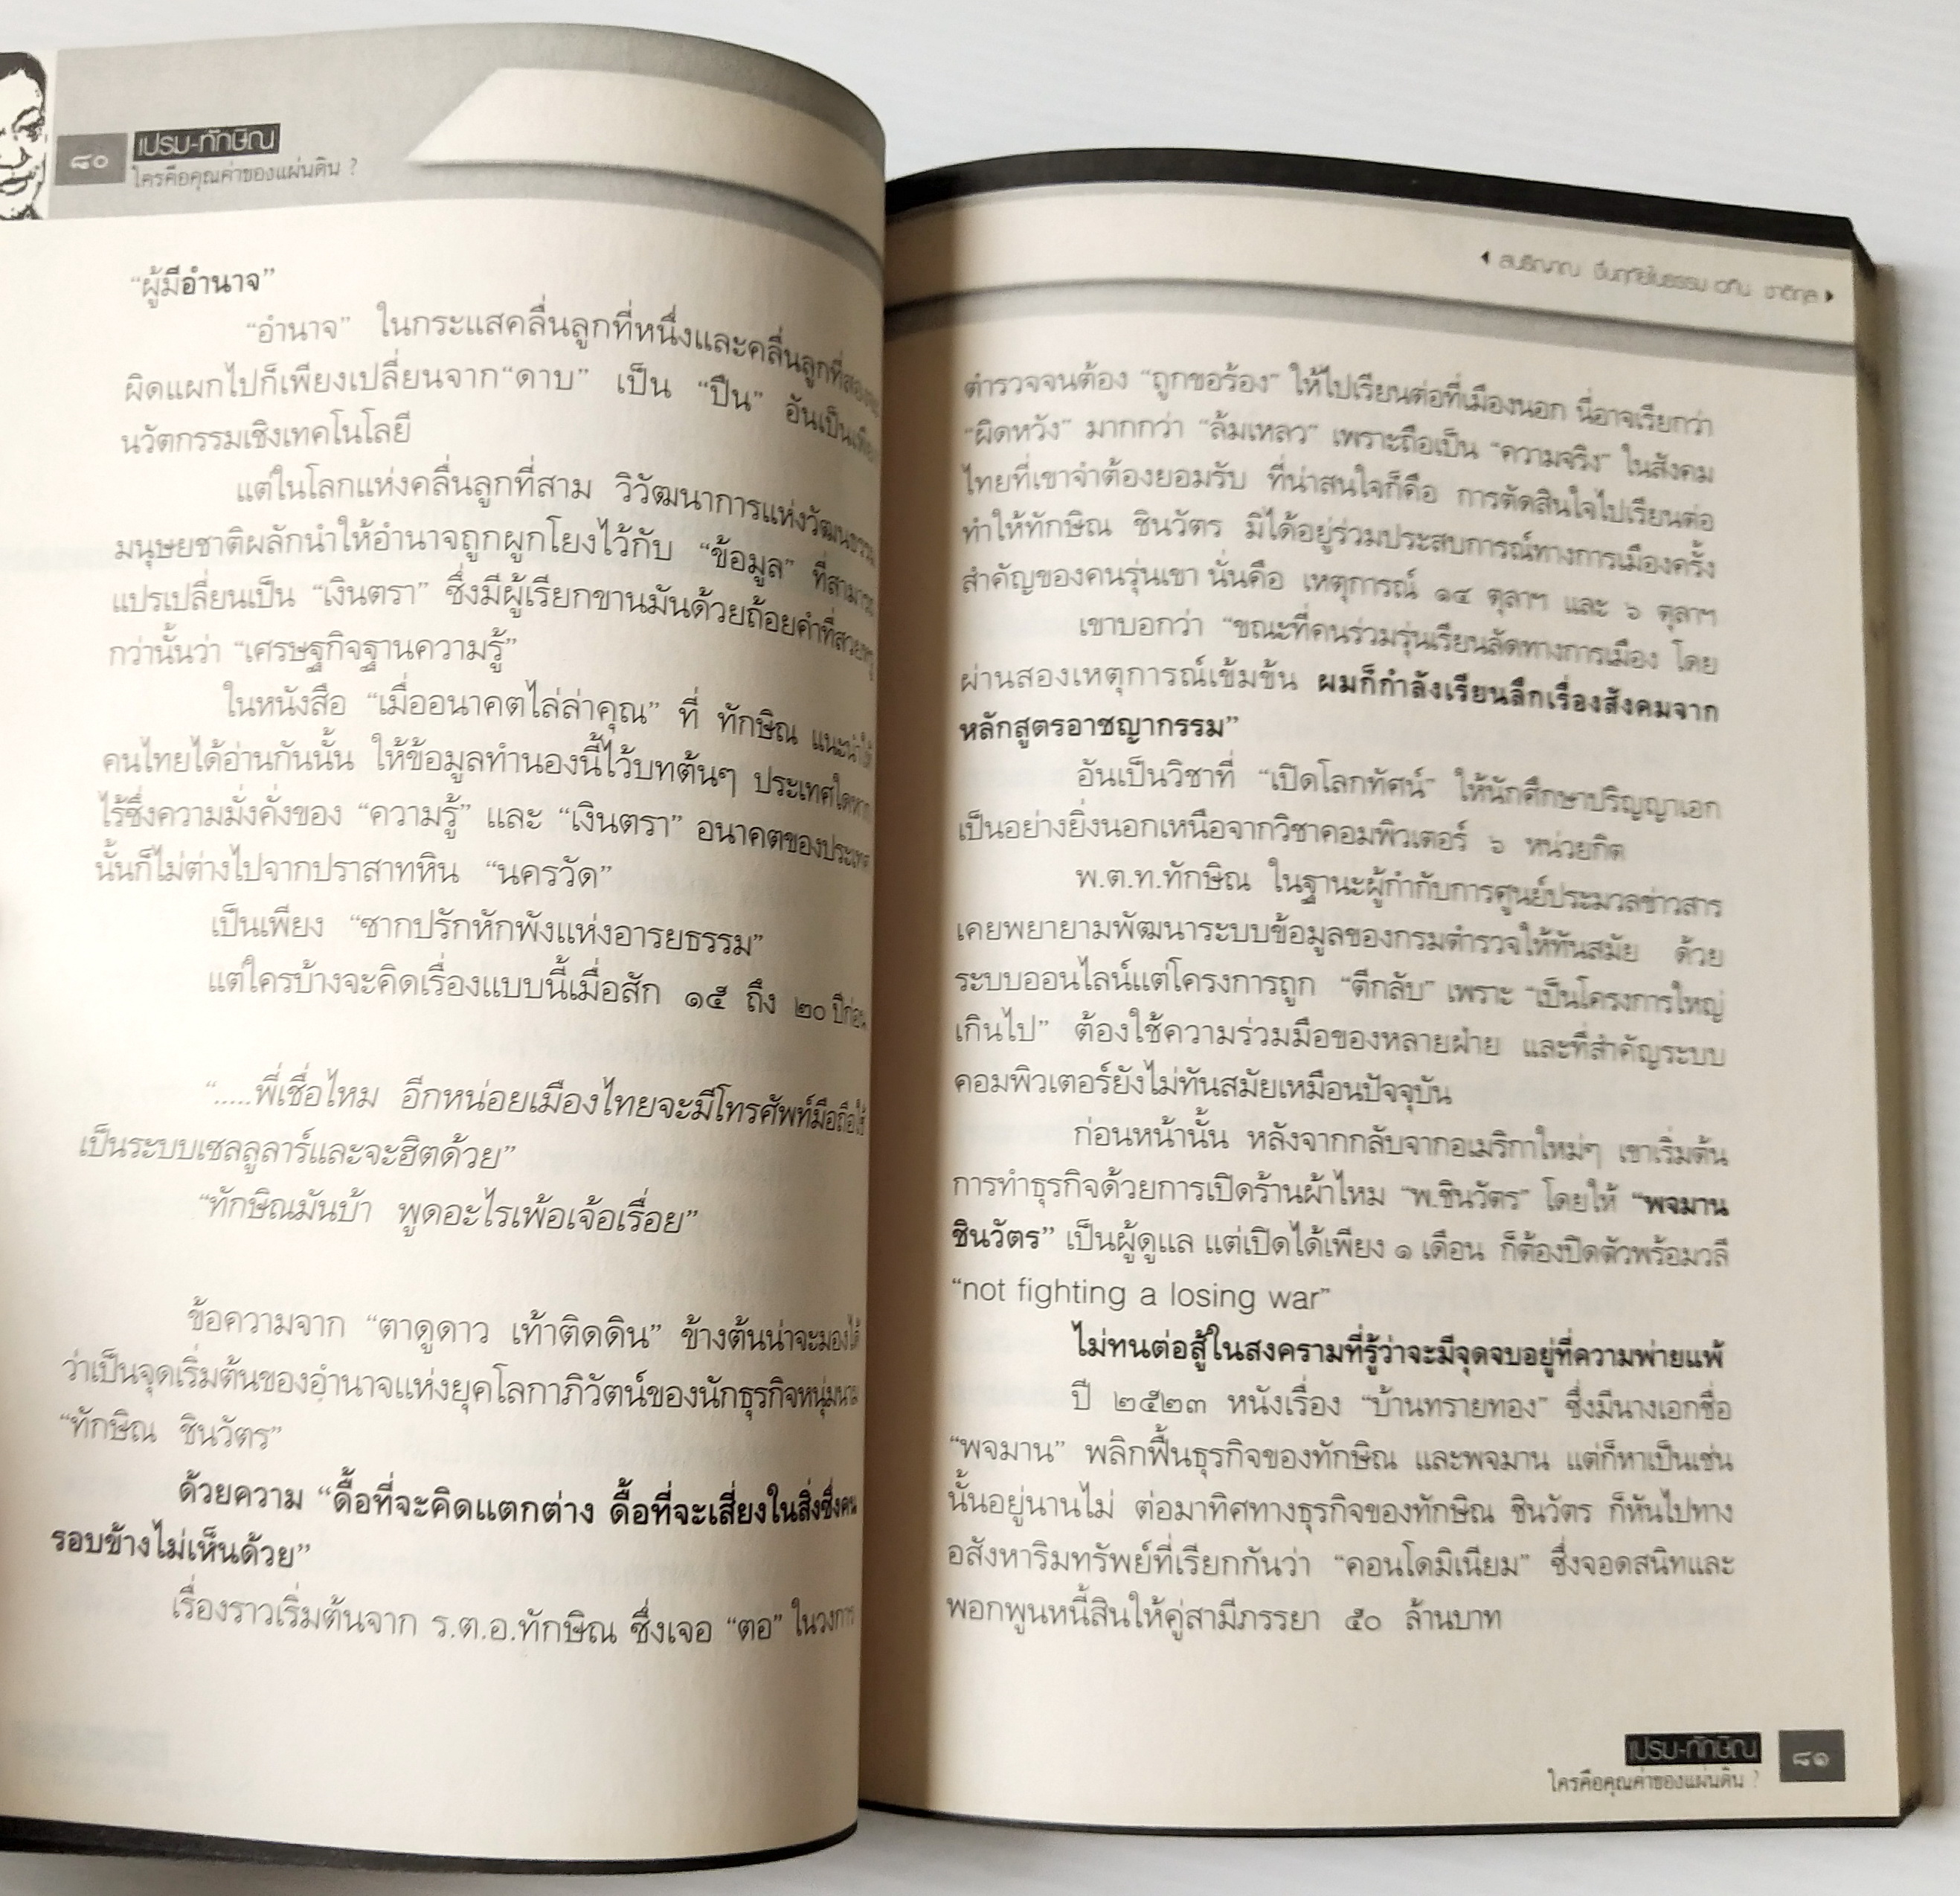 ๘๐
เปรม-ทักษิณ
ใครคือคุณค่าของแผ่นดิน ?
“ผู้มีอำนาจ”
“อำนาจ” ในกระแสคลื่นลูกที่หนึ่งและคลื่นลูกที่สอง
ผิดแผกไปก็เพียงเปลี่ยนจาก“ดาบ” เป็น “ปืน” อันเป็นเพียง
นวัตกรรมเชิงเทคโนโลยี
แต่ในโลกแห่งคลื่นลูกที่สาม วิวัฒนาการแห่งวัฒนธรรม
มนุษยชาติผลักนำให้อำนาจถูกผูกโยงไว้กับ “ข้อมูล” ที่สามารถ
แปรเปลี่ยนเป็น “เงินตรา” ซึ่งมีผู้เรียกขานมันด้วยถ้อยคำที่สวยหรู
กว่านั้นว่า “เศรษฐกิจฐานความรู้”
ในหนังสือ “เมื่ออนาคตไล่ล่าคุณ” ที่ ทักษิณ แนะนำให้
คนไทยได้อ่านกันนั้น ให้ข้อมูลทำนองนี้ไว้บทต้นๆ ประเทศใดหาก
ไร้ซึ่งความมั่งคั่งของ “ความรู้” และ “เงินตรา” อนาคตของประเทศ
นั้นก็ไม่ต่างไปจากปราสาทหิน “นครวัด”
เป็นเพียง “ซากปรักหักพังแห่งอารยธรรม”
แต่ใครบ้างจะคิดเรื่องแบบนี้เมื่อสัก ๑๕ ถึง ๒๐ ปีก่อน
“.....พี่เชื่อไหม อีกหน่อยเมืองไทยจะมีโทรศัพท์มือถือใช้
เป็นระบบเซลลูลาร์และจะฮิตด้วย”
“ทักษิณมันบ้า พูดอะไรเพ้อเจ้อเรื่อย”
ข้อความจาก “ตาดูดาว เท้าติดดิน” ข้างต้นน่าจะมองได้
ว่าเป็นจุดเริ่มต้นของอำนาจแห่งยุคโลกาภิวัตน์ของนักธุรกิจหนุ่มนาม
“ทักษิณ ชินวัตร”
ด้วยความ “ดื้อที่จะคิดแตกต่าง ดื้อที่จะเสี่ยงในสิ่งซึ่งคน
รอบข้างไม่เห็นด้วย”
เรื่องราวเริ่มต้นจาก ร.ต.อ.ทักษิณ ซึ่งเจอ “ตอ” ในวงการ
ตำรวจจนต้อง “ถูกขอร้อง” ให้ไปเรียนต่อที่เมืองนอก นี่อาจเรียกว่า
“ผิดหวัง” มากกว่า “ล้มเหลว” เพราะถือเป็น “ความจริง” ในสังคม
ไทยที่เขาจำต้องยอมรับ ที่น่าสนใจก็คือ การตัดสินใจไปเรียนต่อ
ทำให้ทักษิณ ชินวัตร มิได้อยู่ร่วมประสบการณ์ทางการเมืองครั้ง
สำคัญของคนรุ่นเขา นั่นคือ เหตุการณ์ ๑๔ ตุลาฯ และ ๖ ตุลาฯ
เขาบอกว่า “ขณะที่คนร่วมรุ่นเรียนลัดทางการเมือง โดย
ผ่านสองเหตุการณ์เข้มข้น ผมก็กำลังเรียนลึกเรื่องสังคมจาก
หลักสูตรอาชญากรรม”
อันเป็นวิชาที่ “เปิดโลกทัศน์” ให้นักศึกษาปริญญาเอก
เป็นอย่างยิ่งนอกเหนือจากวิชาคอมพิวเตอร์ ๖ หน่วยกิต
พ.ต.ท.ทักษิณ ในฐานะผู้กำกับการศูนย์ประมวลข่าวสาร
เคยพยายามพัฒนาระบบข้อมูลของกรมตำรวจให้ทันสมัย ด้วย
ระบบออนไลน์แต่โครงการถูก “ตีกลับ” เพราะ “เป็นโครงการใหญ่
เกินไป” ต้องใช้ความร่วมมือของหลายฝ่าย และที่สำคัญระบบ
คอมพิวเตอร์ยังไม่ทันสมัยเหมือนปัจจุบัน
ก่อนหน้านั้น หลังจากกลับจากอเมริกาใหม่ๆ เขาเริ่มต้น
การทำธุรกิจด้วยการเปิดร้านผ้าไหม “พ.ชินวัตร” โดยให้ “พจมาน
ชินวัตร” เป็นผู้ดูแล แต่เปิดได้เพียง ๑ เดือน ก็ต้องปิดตัวพร้อมวลี
“not fighting a losing war”
ไม่ทนต่อสู้ในสงครามที่รู้ว่าจะมีจุดจบอยู่ที่ความพ่ายแพ้
ปี ๒๕๒๓ หนังเรื่อง “บ้านทรายทอง” ซึ่งมีนางเอกชื่อ
“พจมาน” พลิกฟื้นธุรกิจของทักษิณ และพจมาน แต่ก็หาเป็นเช่น
นั้นอยู่นานไม่ ต่อมาทิศทางธุรกิจของทักษิณ ชินวัตร ก็หันไปทาง
อสังหาริมทรัพย์ที่เรียกกันว่า “คอนโดมิเนียม” ซึ่งจอดสนิทและ
พอกพูนหนี้สินให้คู่สามีภรรยา ๕๐ ล้านบาท
เปรม-ทักษิณ
ใครคือคุณค่าของแผ่นดิน ?
๘๑